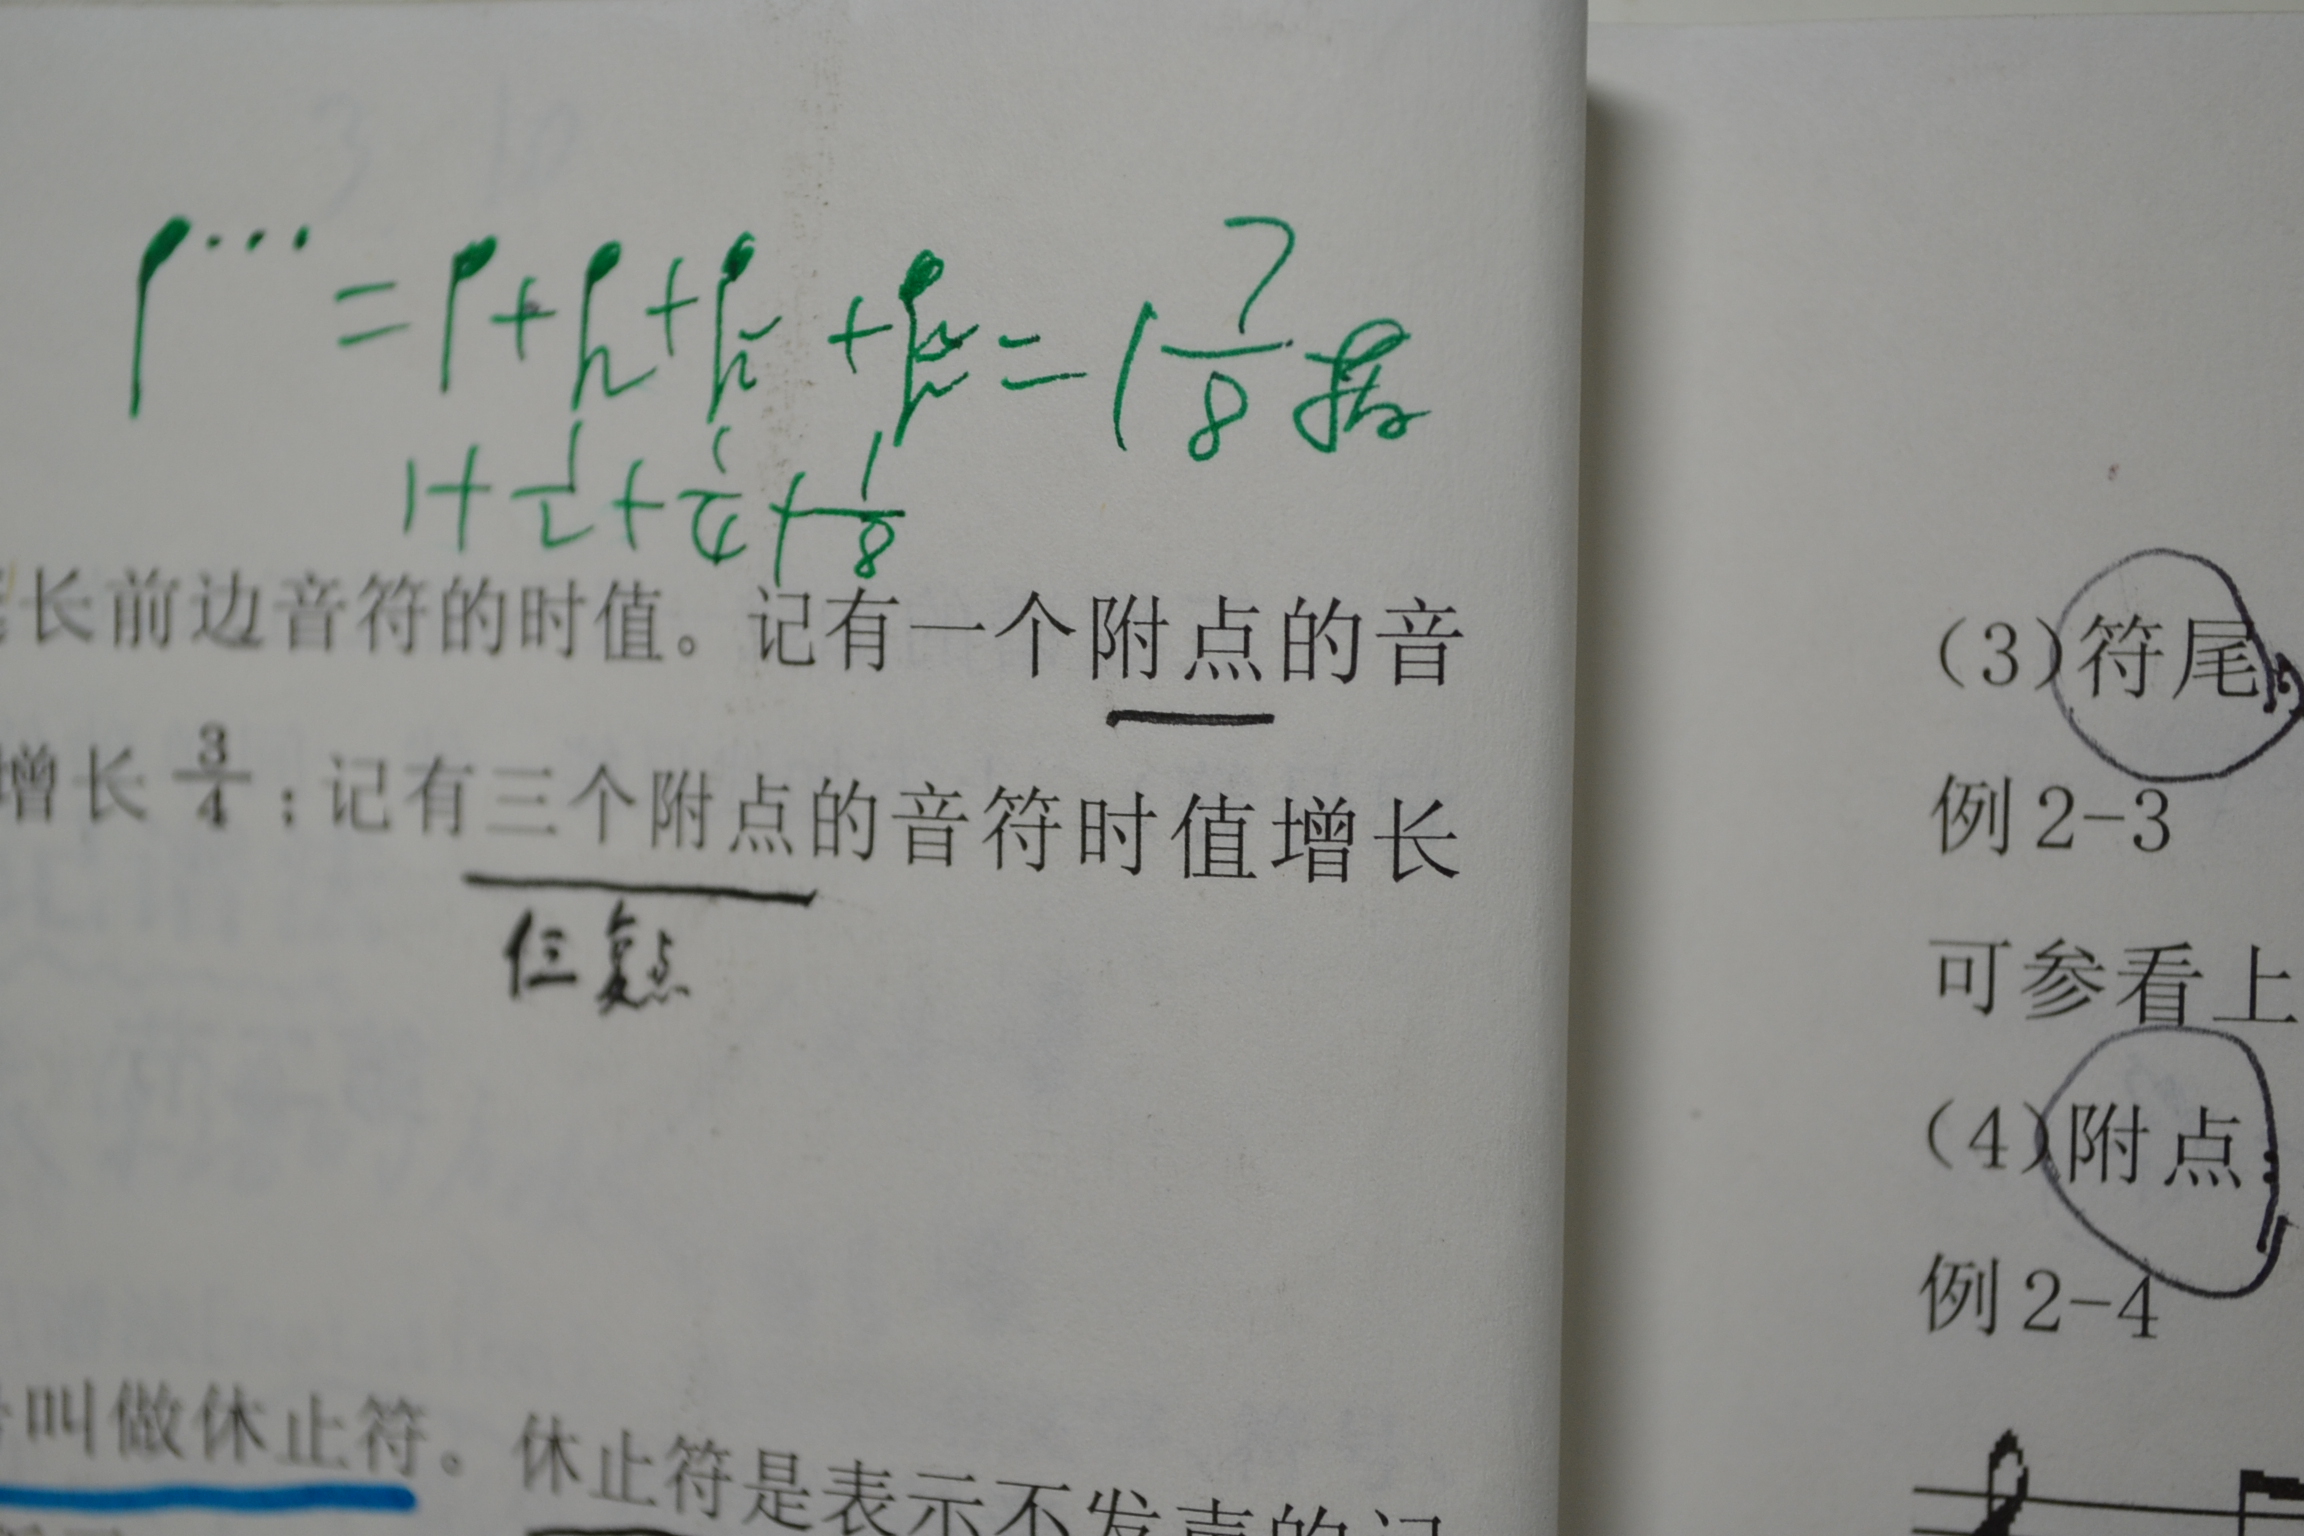 = + + + = 1 7/8 拍
1 + 1/2 + 1/4 + 1/8
长前边音符的时值。记有一个附点的音
增长 3/4 ；记有三个附点的音符时值增长
复点
叫做休止符。休止符是表示不发声的记
(3)符尾
例 2-3
可参看上
(4)附点
例 2-4